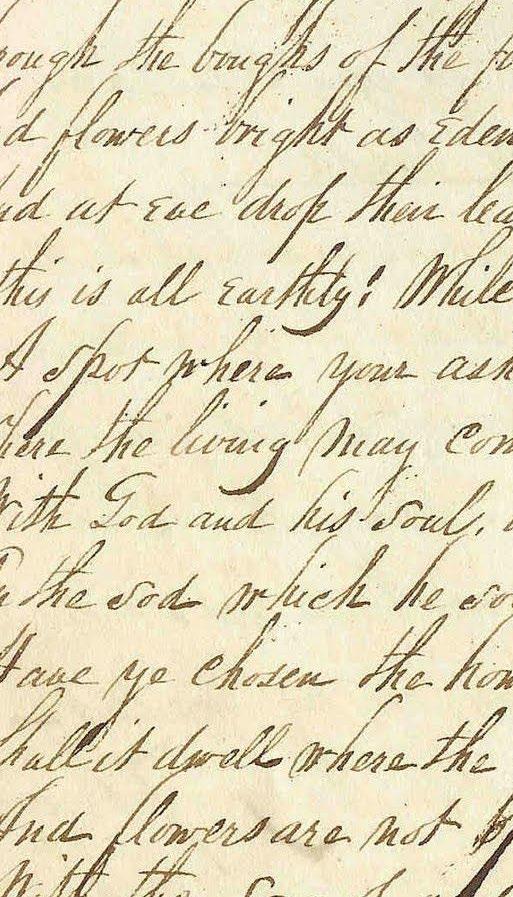 the boughs of the
flowers bright as Eden
at eve drop their
this is all Earthly! While
A spot where your
the living may
With God and his soul,
the sod which he
Have ye chosen the
Shall it dwell where the
And flowers are not